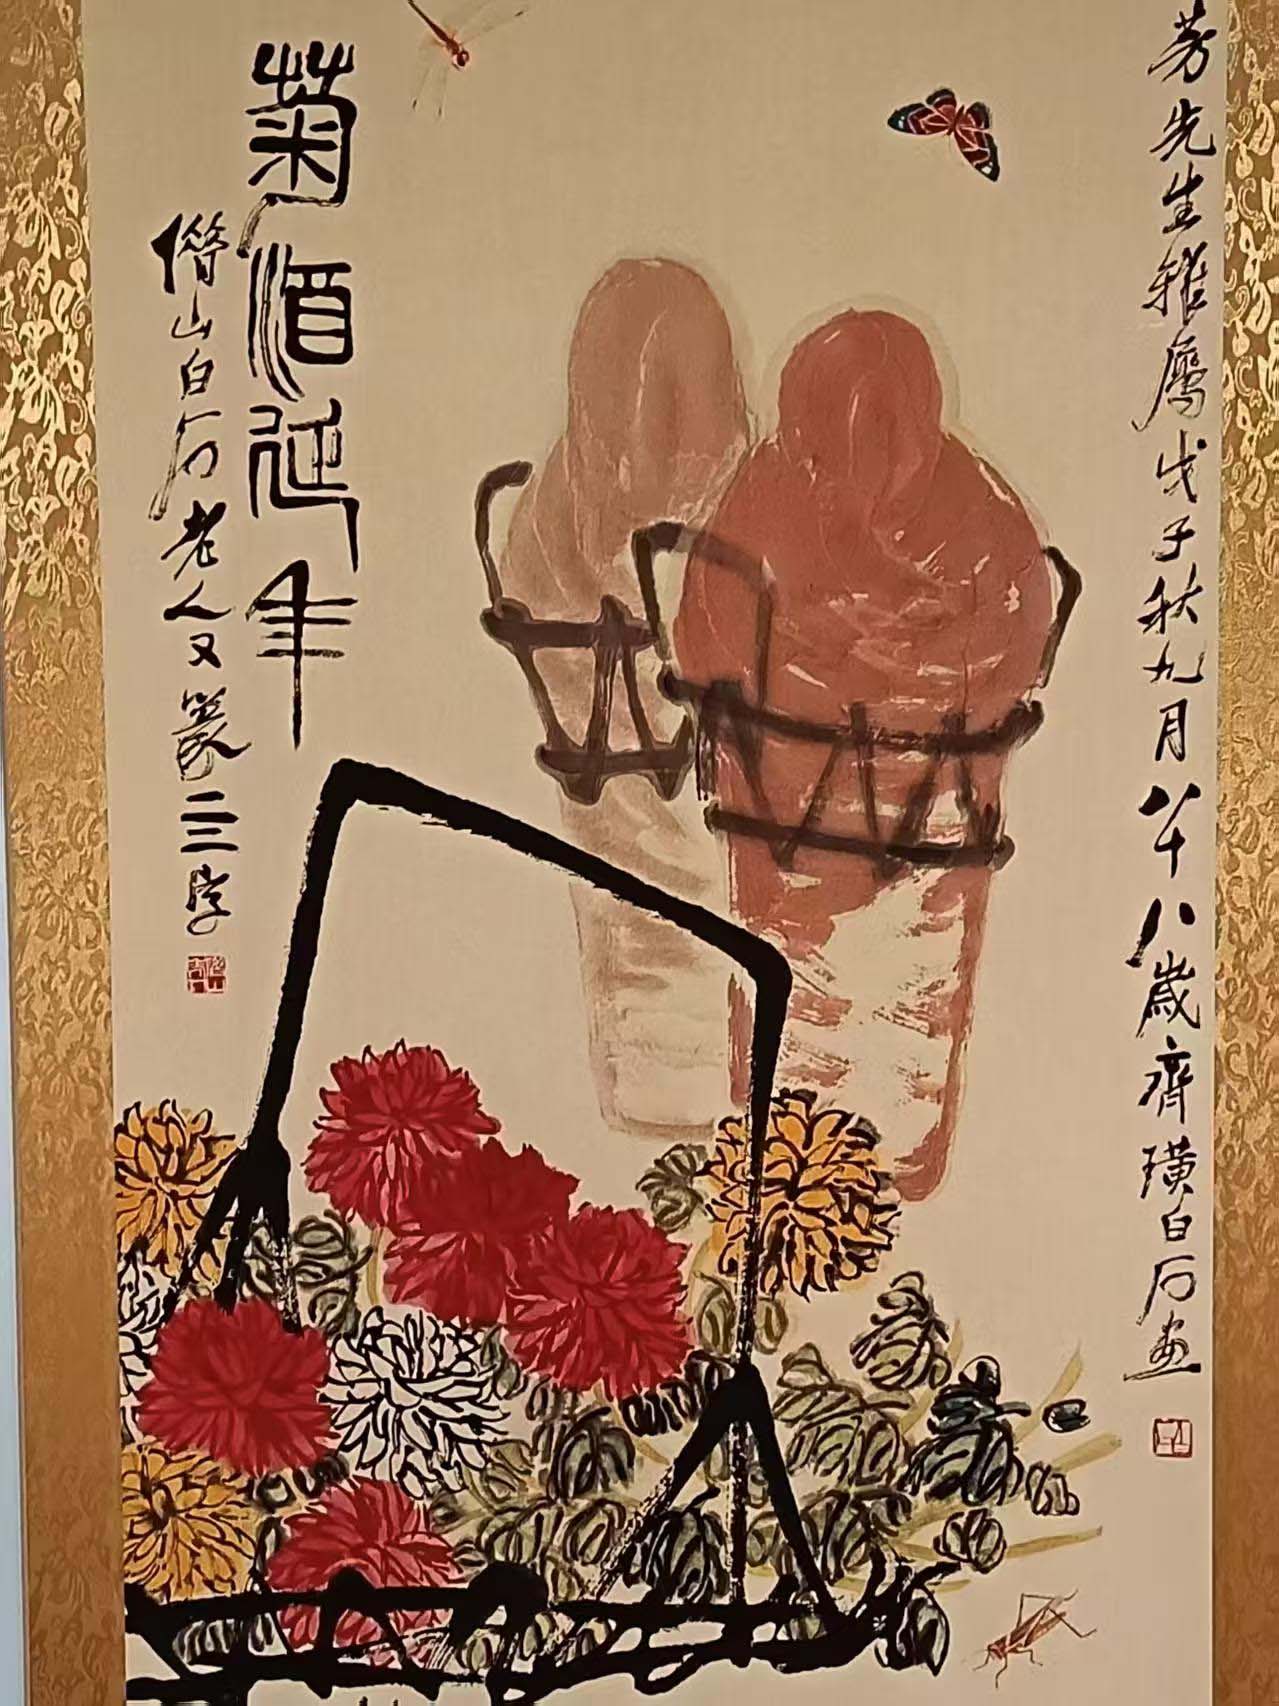 芳先生雅属戊子秋九月八十八岁齊璜白石画
菊酒延年
借山白石老人又篆二三字